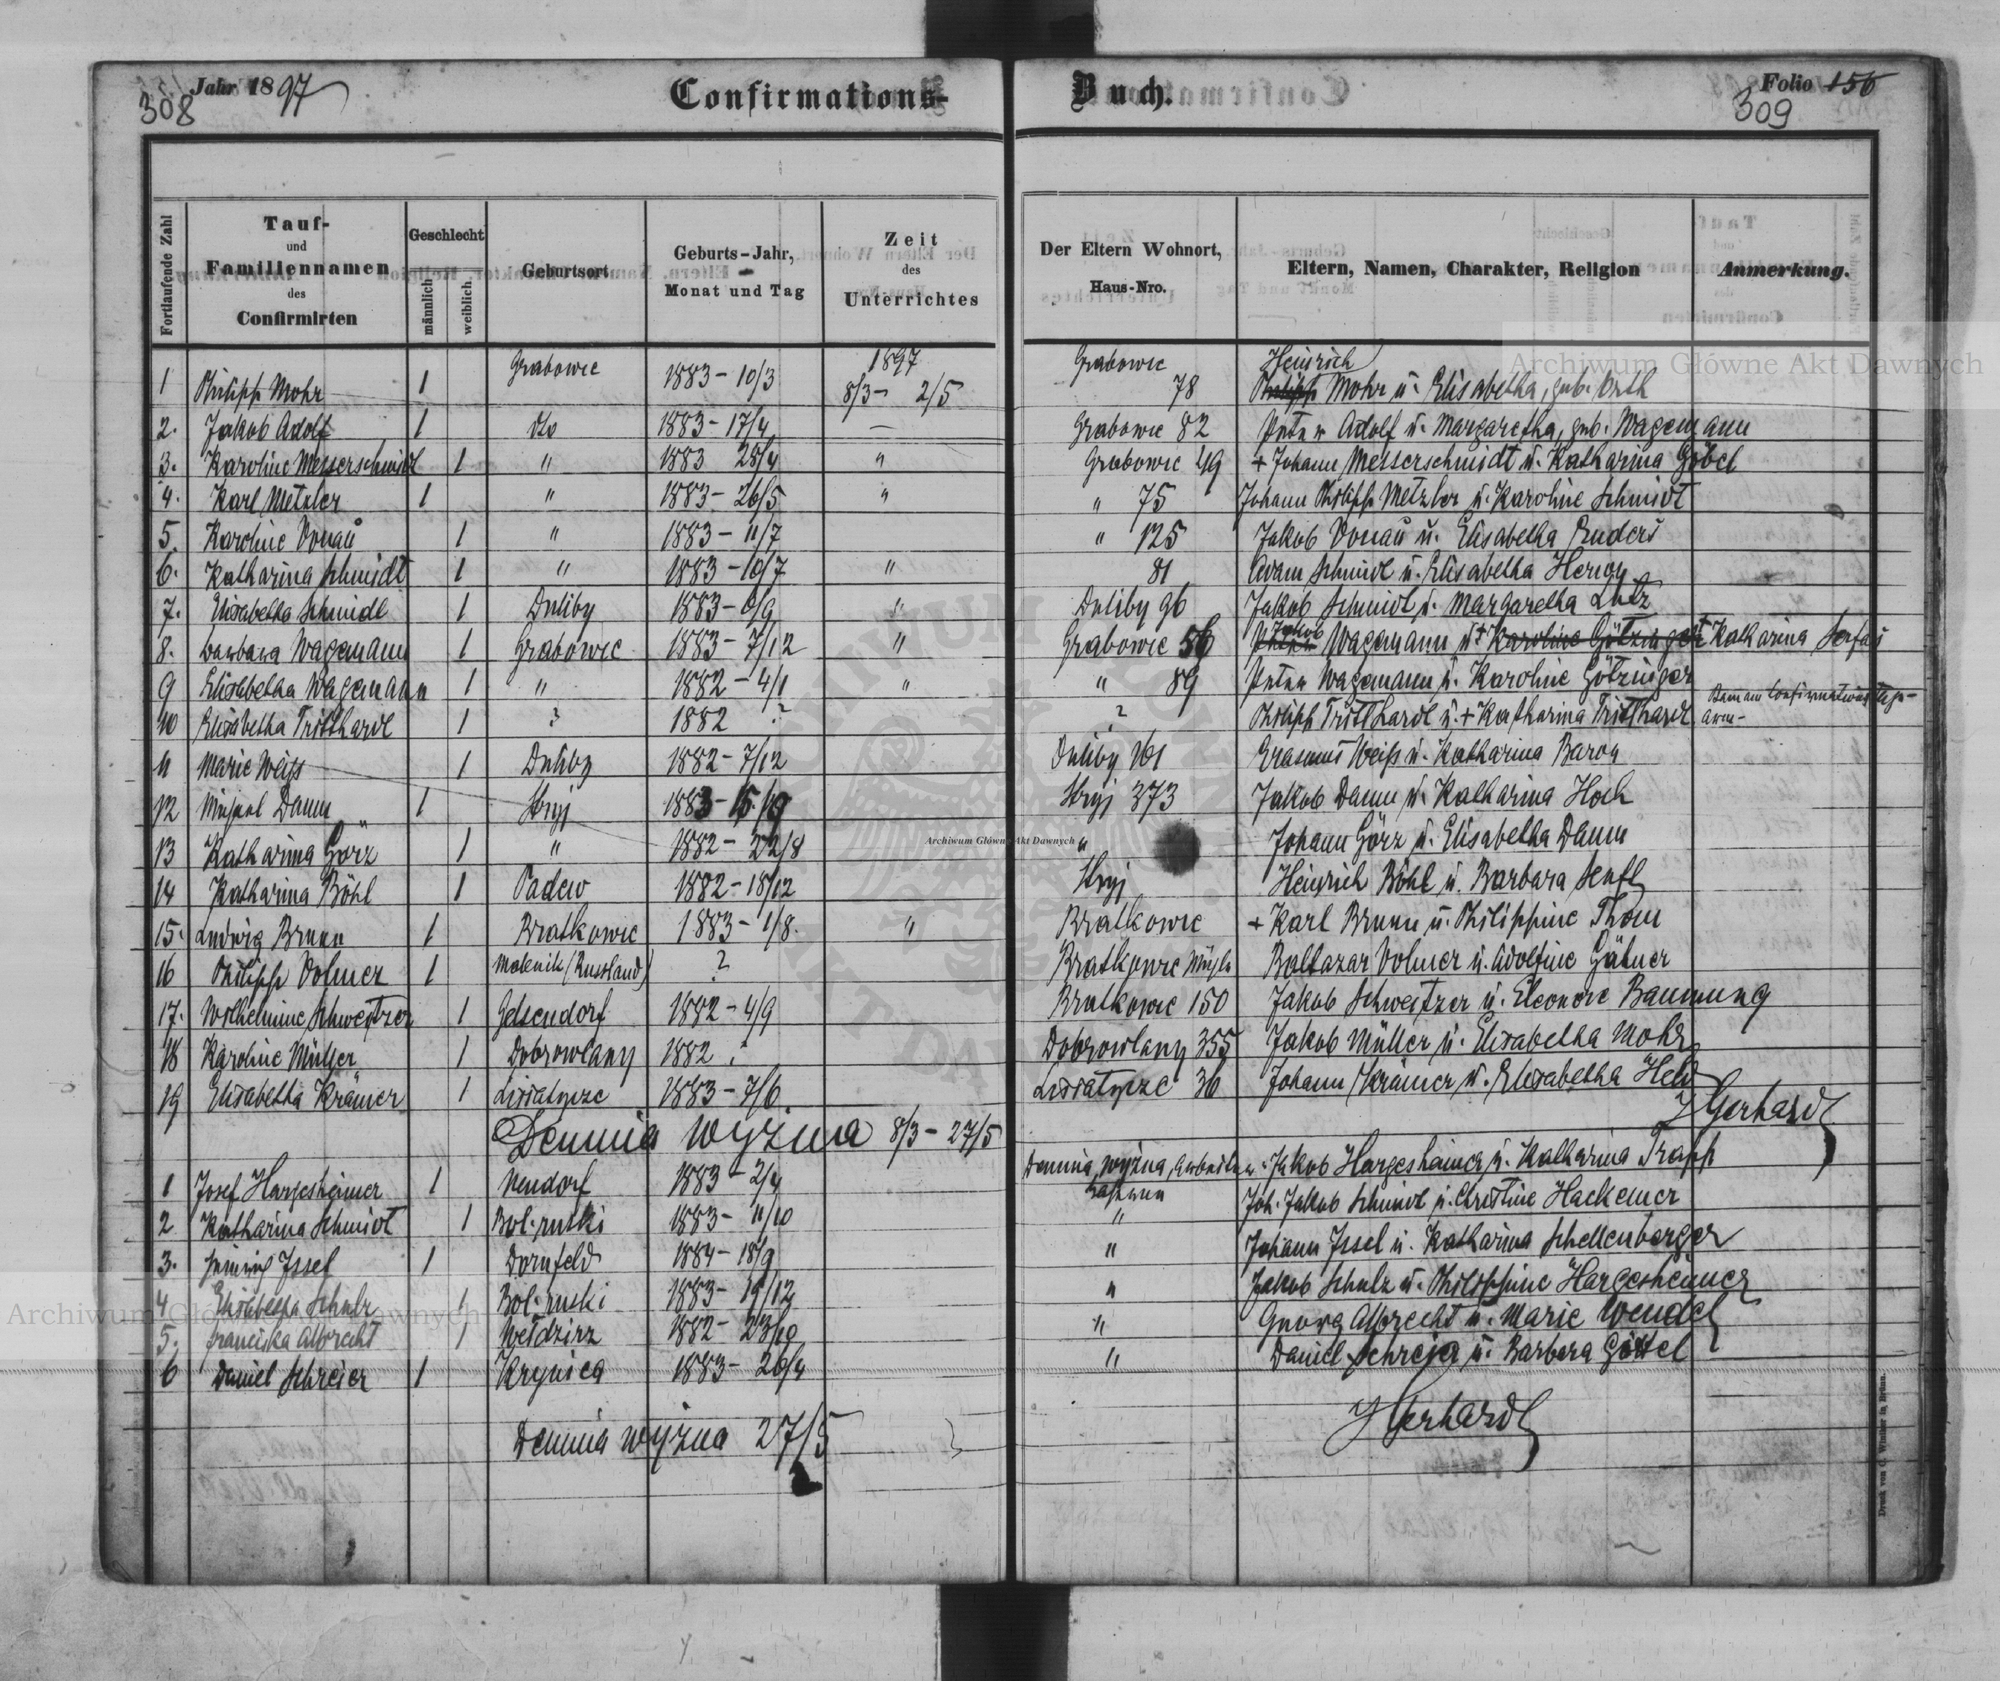 Jahr 1897
308
Confirmations-
Buch.
Folio 156
309
Fortlaufende Zahl
Tauf-
und
Familiennamen
des
Confirmirten
Geschlecht
männlich
weiblich.
Geburtsort
Geburts-Jahr,
Monat und Tag
Zeit
des
Unterrichtes
Der Eltern Wohnort,
Haus-Nro.
Eltern, Namen, Charakter, Religion
Anmerkung.
1 Philipp Mohr 1 Grabowic 1883 - 10/3 1897 8/3 - 2/5 Grabowic 78 Philipp Heinrich Mohr u. Elisabetha, geb. Orth
2. Jakob Adolf 1 dto 1883 - 17/4 — Grabowic 82 Peter Adolf u. Margaretha, geb. Wagemann
3. Karoline Messerschmidt 1 " 1883 28/4 " Grabowic 49 + Johann Messerschmidt u. Katharina Göbel
4. Karl Metzler 1 " 1883 - 26/5 " " 75 Johann Philipp Metzler u. Karoline Schmidt
5. Karoline Donau 1 " 1883 - 11/7 " 125 Jakob Donau u. Elisabetha Enders
6. Katharina Schmidt 1 " 1883 - 10/7 " 81 Adam Schmidt u. Elisabetha
7. Elisabetha Schmidt 1 Duliby 1883 - 6/9 " Duliby 96 Jakob Schmidt u. Margaretha Lutz
8. Barbara Wagemann 1 Grabowic 1883 - 7/12 " Grabowic 56 Peter Jakob Wagemann u. + Karoline Götzinger Katharina Serfas
9 Elisabetha Wagemann 1 " 1882 - 4/1 " " 89 Peter Wagemann u. Karoline Götzinger
10 Elisabetha Tritthardt 1 ? 1882 ? ? Philipp Tritthardt u. + Katharina Tritthardt
11 Marie Weiß 1 Duliby 1882 - 7/12 Duliby 161 Erasmus Weiß u. Katharina Baron
12 Michael Damm 1 Stryj 1883 - Stryj 373 Jakob Damm u. Katharina Hoch
13 Katharina Görz 1 " 1882 - 22/8 " Johann Görz u. Elisabetha Damm
14 Katharina Böhl 1 Padew 1882 - 18/12 Stryj Heinrich Böhl u. Barbara Senft
15. Ludwig Brunn 1 Bratkowic 1883 - 1/8. " Bratkowic + Karl Brunn u. Philippine Thom
16 Philipp Volmer 1 (Russland) ? Bratkowic Baltazar Volmer u. Adolfine
17. Wilhelmine Schweitzer 1 Gelsendorf 1882 - 4/9 Bratkowic 150 Jakob Schweitzer u. Eleonore Baumung
18 Karoline Müller 1 Dobrowlany 1882 ? Dobrowlany 355 Jakob Müller u. Elisabetha Mohr
19 Elisabetha Krämer 1 Lisiatycze 1883 - 7/6 Lisiatycze 36 Johann Krämer u. Elisabetha Held
JGerhardt
Demnia wyżna 8/3 - 27/5
1 Josef Hargesheimer 1 Neudorf 1883 - 2/4 Demnia wyżna, Arbeiter Jakob Hargesheimer u. Katharina Trapp
2 Katharina Schmidt 1 Bol. ruski 1883 - 11/10 " Joh. Jakob Schmidt u. Christine Hackemer
3. Issel 1 Dornfeld 1884 - 18/9 " Johann Issel u. Katharina Schellenberger
4 Elisabetha Schulz 1 Bol. ruski 1883 - 19/12 " Jakob Schulz u. Philippine Hargesheimer
5. Franciska Albrecht 1 Wełdzirz 1882 - 23/10 " Georg Albrecht u. Marie Wendel
6 Daniel Schreier 1 Krynica 1883 - 26/4 " Daniel Schreier u. Barbara Göttel
Demnia wyżna 27/5
JGerhardt
Druck von C. Winiker in Brünn.
Archiwum Główne Akt Dawnych
Archiwum Główne Akt Dawnych
Archiwum Główne Akt Dawnych